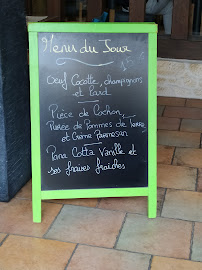 Menu du Jour
Oeuf Cocotte, champignons
et Lard
Pièce de Cochon,
Purée de Pommes de Terre
et Crème Parmesan
Pana Cotta Vanille et
ses fraises fraîches